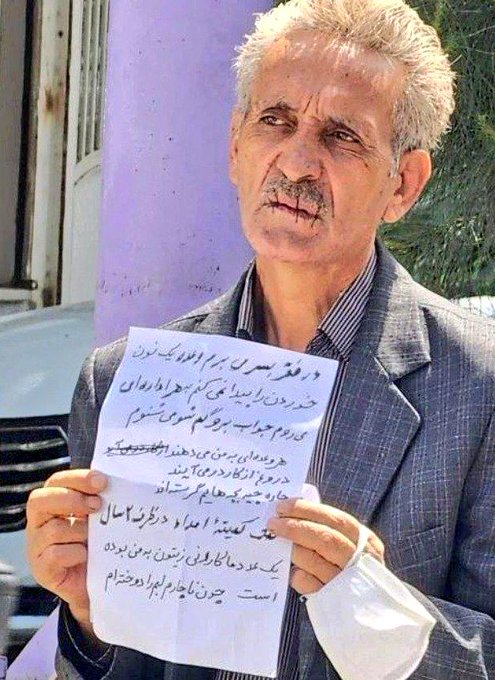 در فقر بسری برم وعده یک نون
خوردن را پیدا نمی کنم بهر اداره ای
می روم جواب برو گم شو می شنوم
هر وعده ای به من می دهند از
دروغ از کار در می آیند
چاره چیه بچه هایم گرسنه اند
کمیتهٔ امداد در ظرف ۲ سال
یک عدد ماکارونی زیتون به من بوده
است چون ناچارم لبم را دوخته ام